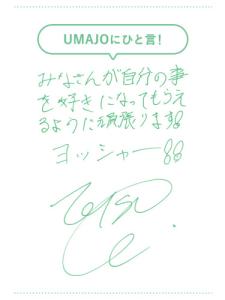 UMAJOにひと言!
みなさんが自分の事
を好きになってもらえ
るように頑張ります!!
ヨッシャー!!